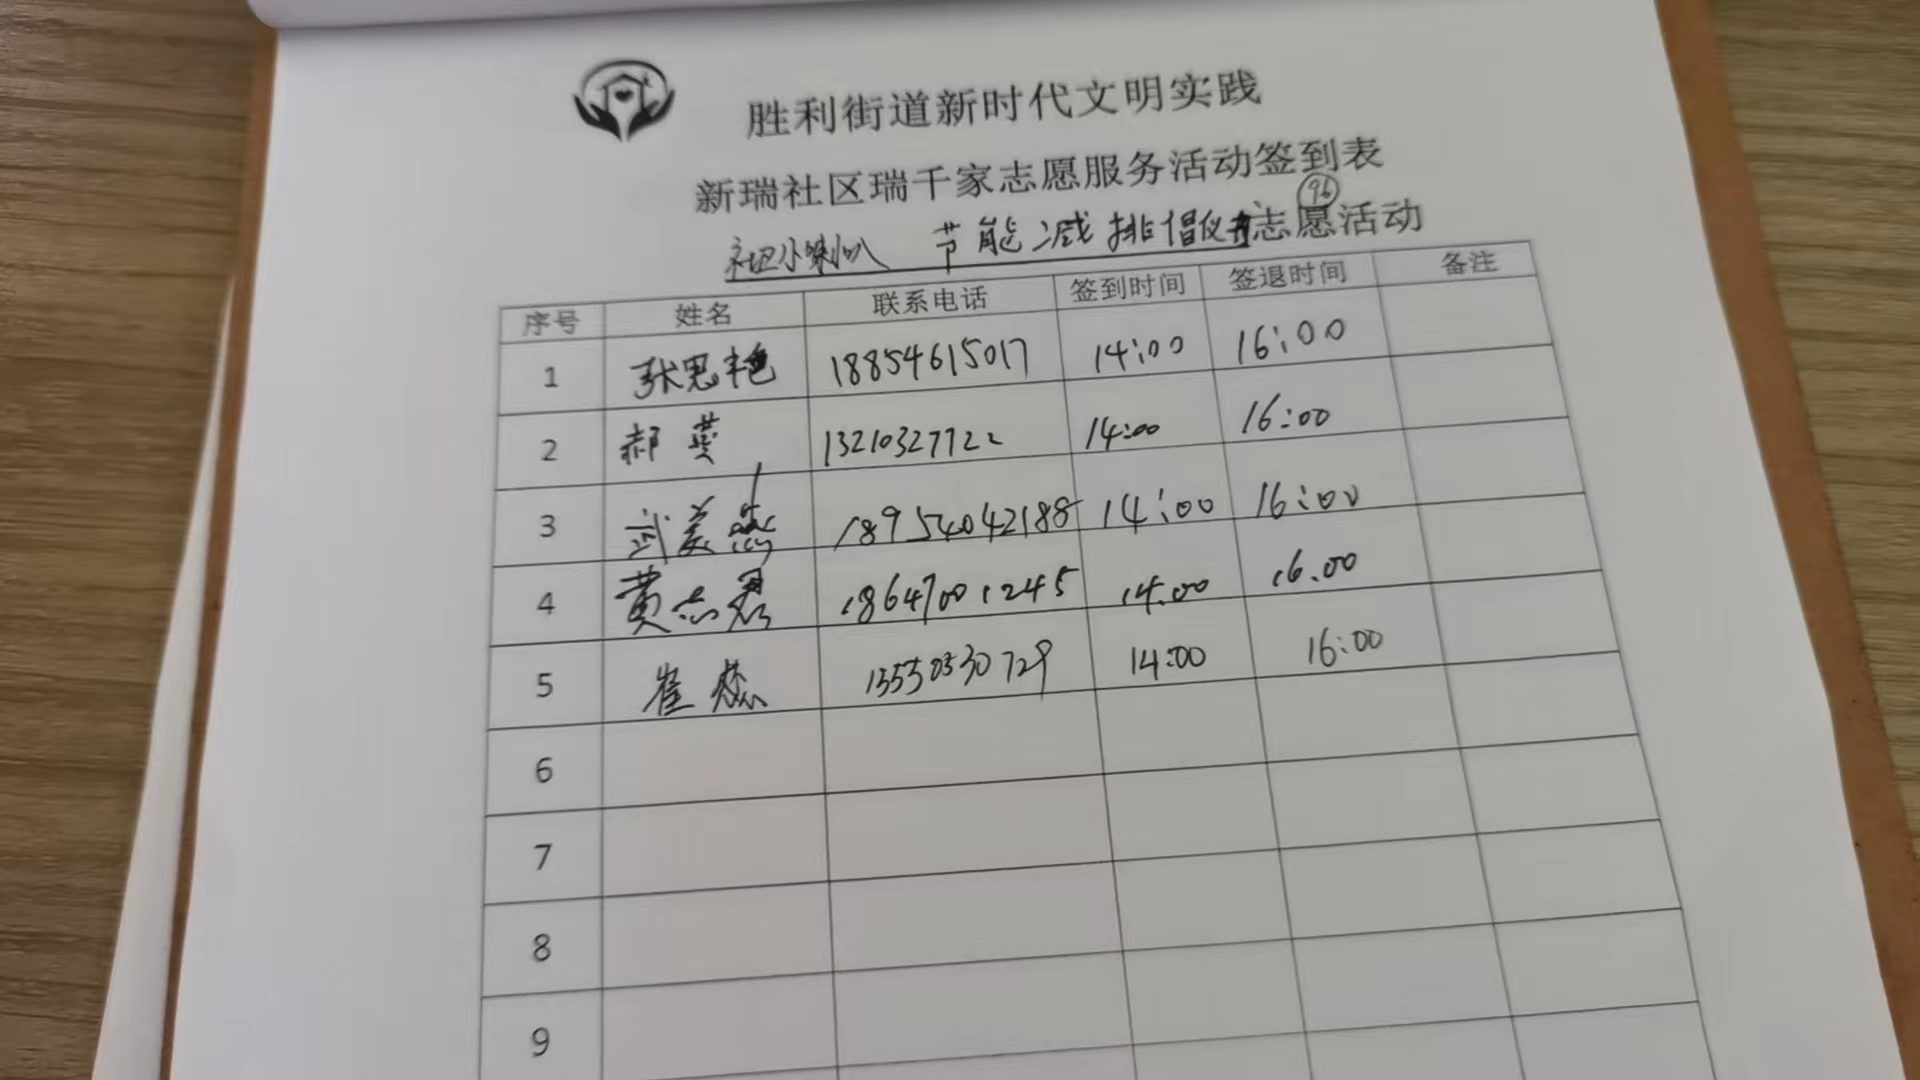 胜利街道新时代文明实践
新瑞社区瑞千家志愿服务活动签到表
96
社区小喇叭 节能减排倡仪书志愿活动
序号 姓名 联系电话 签到时间 签退时间 备注
1 张思艳 18854615017 14:00 16:00
2 郝燕 13210327722 14:00 16:00
3 武美燕 18954042188 14:00 16:00
4 黄志君 18647001245 14:00 16.00
5 崔燕 14:00 16:00
6
7
8
9